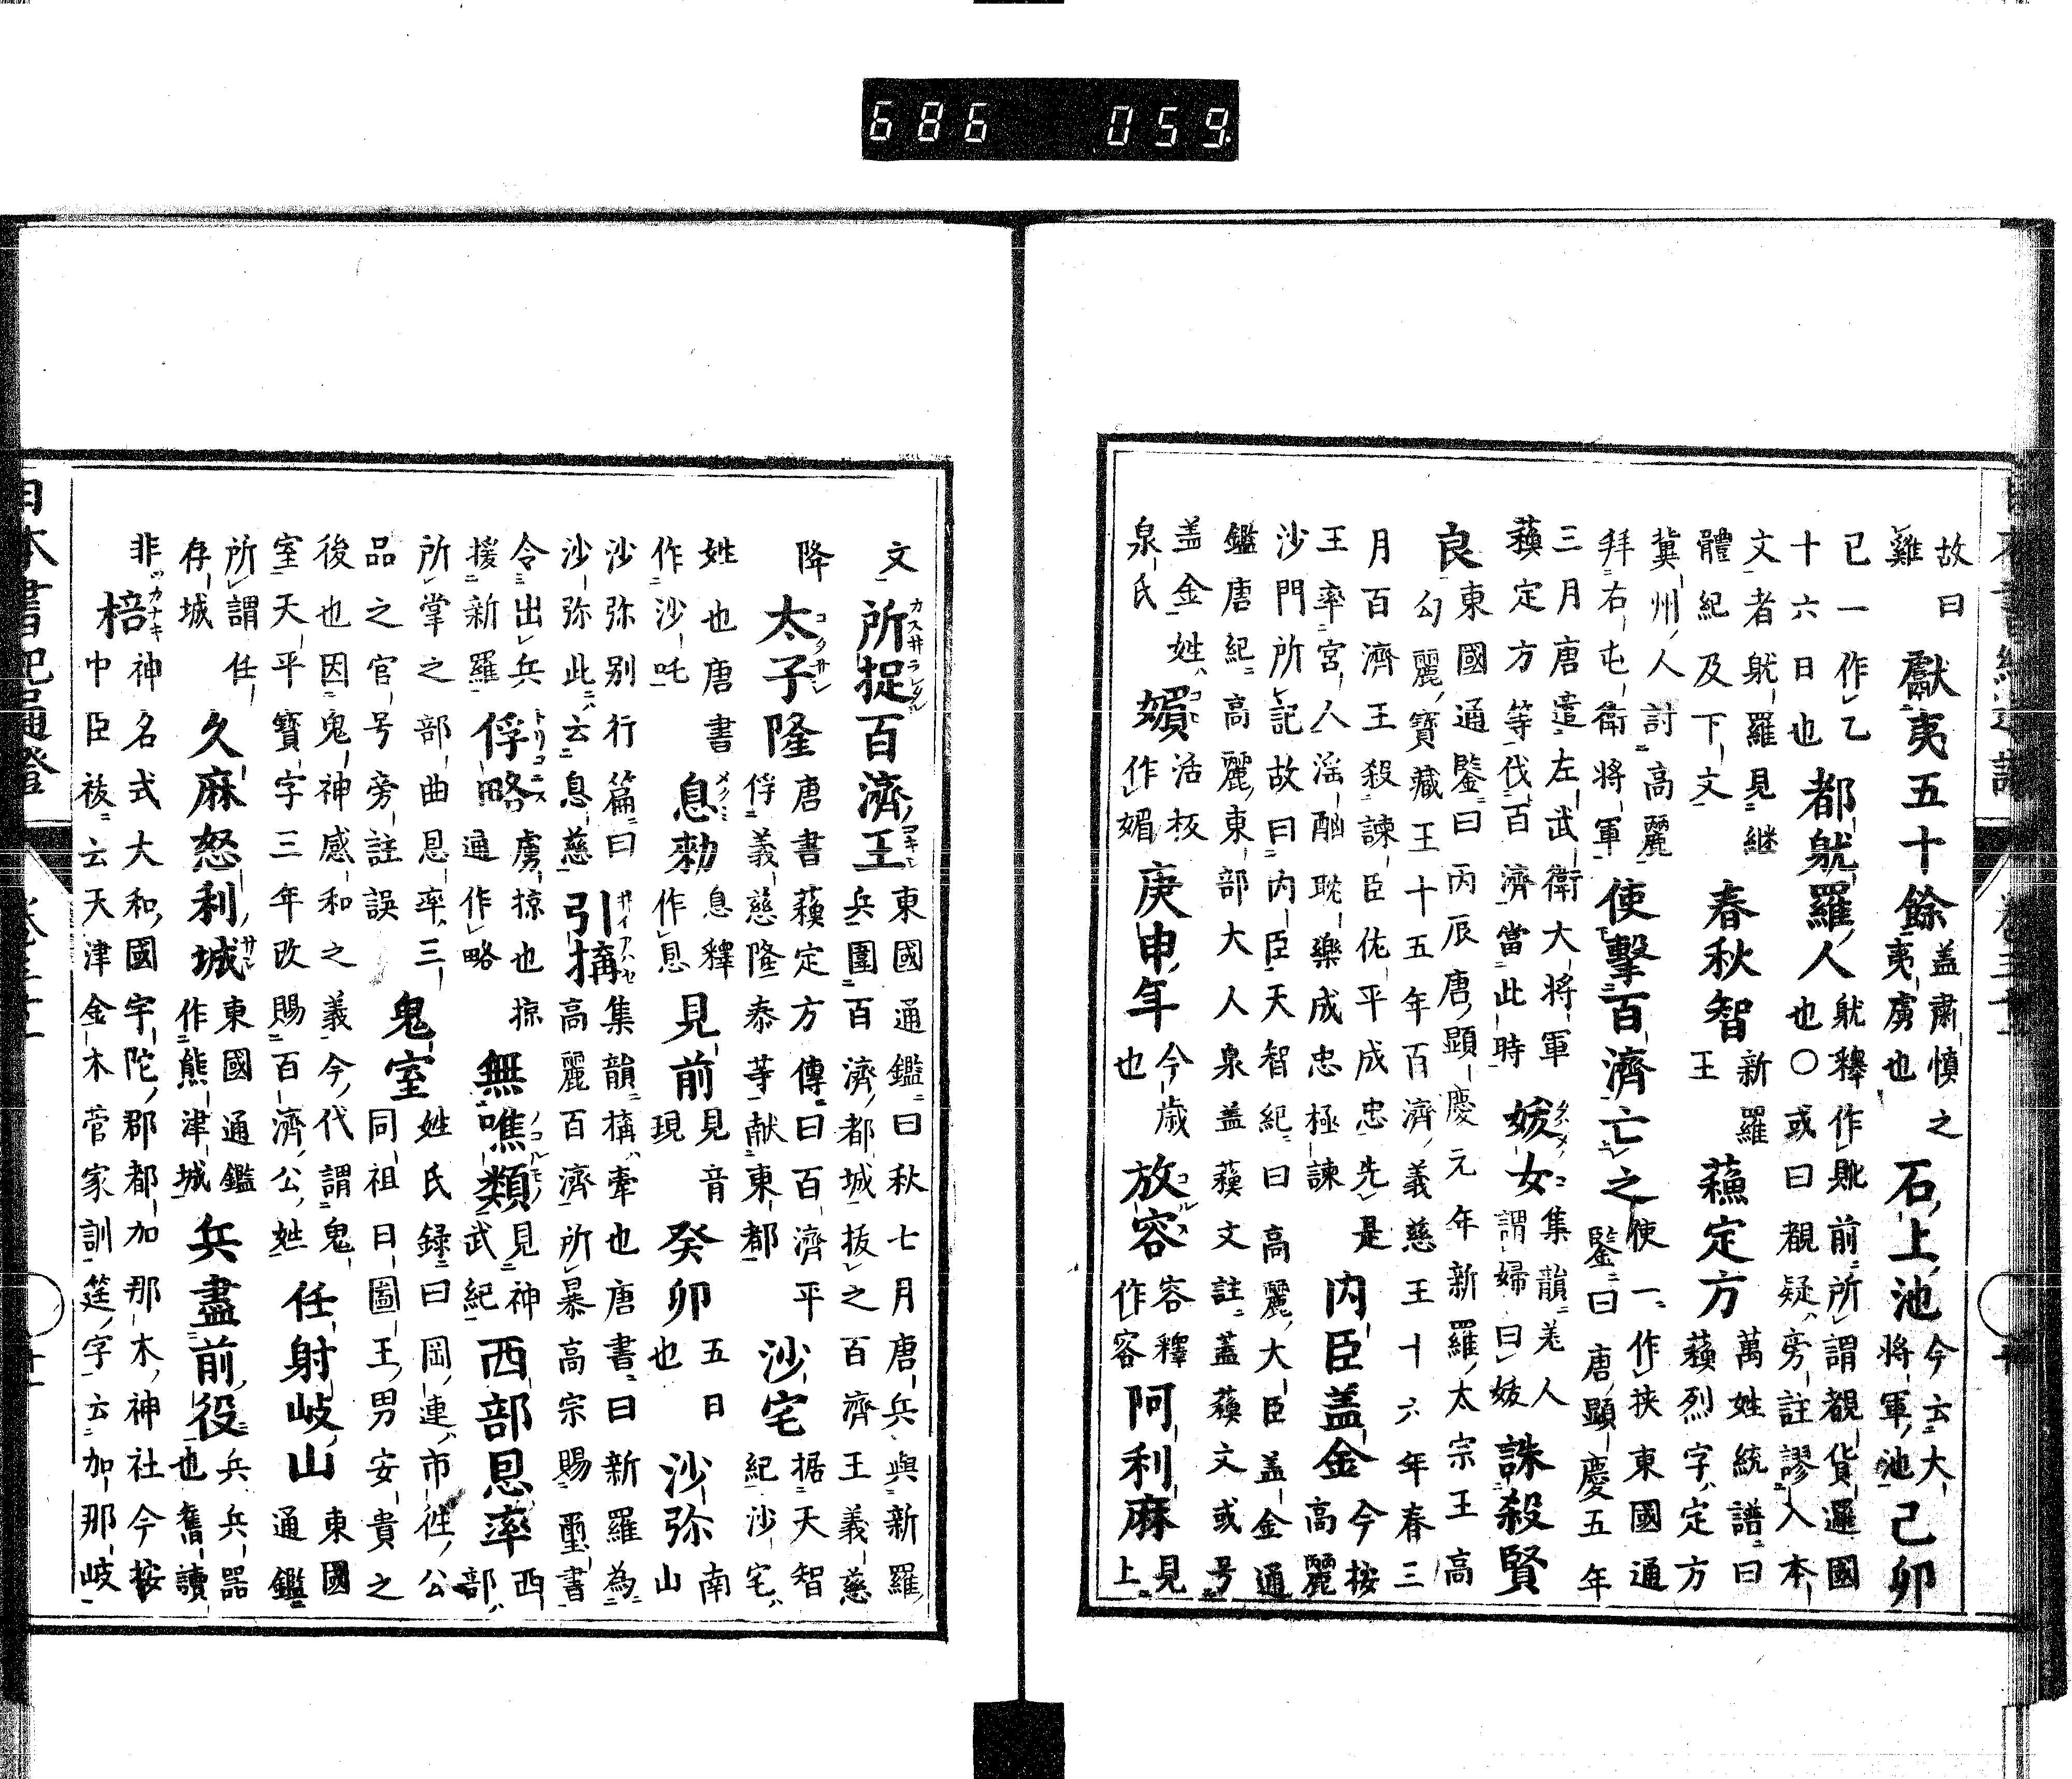 686 059
故曰雞 獻夷五十餘 盖肅慎之夷虜也 石上池 今云大將軍池 己卯
已一作乙十六日也 都躭羅人 躭釋作躭前所謂覩貨邏國也〇或曰覩疑旁註謬入本
文者躭羅見継體紀及下文 春秋智 新羅王 蘓定方 萬姓統譜曰蘓烈字定方
冀州人討高麗拜右屯衛將軍 使擊百濟亡之 使一作挟東國通鑒曰唐顯慶五年
三月唐遣左武衛大將軍蘓定方等伐百濟當此時 妭女 集韻羗人謂婦曰妭 誅殺賢
良 東國通鑒曰丙辰唐顯慶元年新羅太宗王高勾麗寶藏王十五年百濟義慈王十六年春三
月百濟王殺諌臣佐平成忠先是王率宮人滛酗耽樂成忠極諌 内臣盖金 今按高麗
沙門所記故曰内臣天智紀曰高麗大臣盖金通鑑唐紀高麗東部大人泉盖蘓文註蓋蘓文或号
盖金姓泉氏 嬪 活板作媚 庚申年 今歳也 放容 容釋作客 阿利麻 見上
文 所捉百濟王 東國通鑑曰秋七月唐兵與新羅兵圍百濟都城拔之百濟王義慈
降 太子隆 唐書蘓定方傳曰百濟平俘義慈隆泰等献東都 沙宅 据天智紀沙宅
姓也唐書作沙吒 息勑 息釋作 見前 見音現 癸卯 五日也 沙弥 南山
沙弥別行篇曰沙弥此云息慈 引搆 集韻搆牽也唐書曰新羅為高麗百濟所暴高宗賜璽書
令出兵援新羅 俘略 虜掠也掠通作略 無噍類 見神武紀 西部恩率 西部
所掌之部曲恩率三品之官号旁註誤 鬼室 姓氏録曰岡連市徃公同祖目圖王男安貴之
後也因鬼神感和之義今代謂鬼室天平寶字三年改賜百濟公姓 任射岐山 東國通鑑
所謂任存城 久麻怒利城 東國通鑑作熊津城 兵盡前役 兵兵器也舊讀
非 棓 神名式大和國宇陀郡都加那木神社今按中臣祓云天津金木菅家訓筳字云加那岐
日本書紀通證